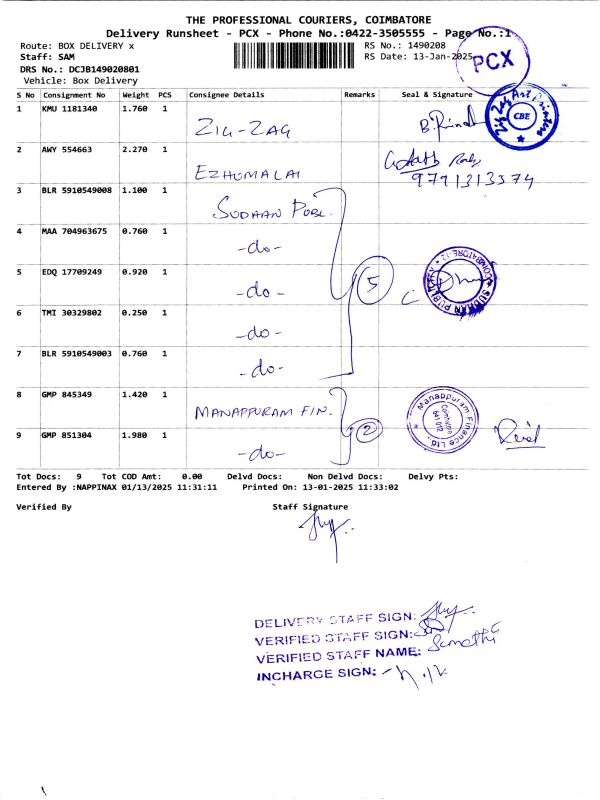 THE PROFESSIONAL COURIERS, COIMBATORE
Delivery Runsheet - PCX - Phone No.:0422-3505555 - Page No.:1
Route: BOX DELIVERY x RS No.: 1490208
Staff: SAM RS Date: 13-Jan-2025
DRS No.: DCJB149020801
Vehicle: Box Delivery
PCX
S No Consignment No Weight PCS Consignee Details Remarks Seal & Signature
1 KMU 1181340 1.760 1 ZIG-ZAG
Zig Zag Art Printers CBE
2 AWY 554663 2.270 1 EZHUMALAI 9791313374
3 BLR 5910549008 1.100 1 SUDAAN PUBL.
4 MAA 704963675 0.760 1 -do-
5 EDQ 17709249 0.920 1 -do- 5
6 TMI 30329802 0.250 1 -do-
7 BLR 5910549003 0.760 1 -do-
8 GMP 845349 1.420 1 MANAPPURAM FIN.
Manappuram Finance Ltd. Coimbatore 641 012
9 GMP 851304 1.980 1 -do- 2
Tot Docs: 9 Tot COD Amt: 0.00 Delvd Docs: Non Delvd Docs: Delvy Pts:
Entered By :NAPPINAX 01/13/2025 11:31:11 Printed On: 13-01-2025 11:33:02
Verified By Staff Signature
DELIVERY STAFF SIGN:
VERIFIED STAFF SIGN:
VERIFIED STAFF NAME: Sumathi
INCHARGE SIGN: